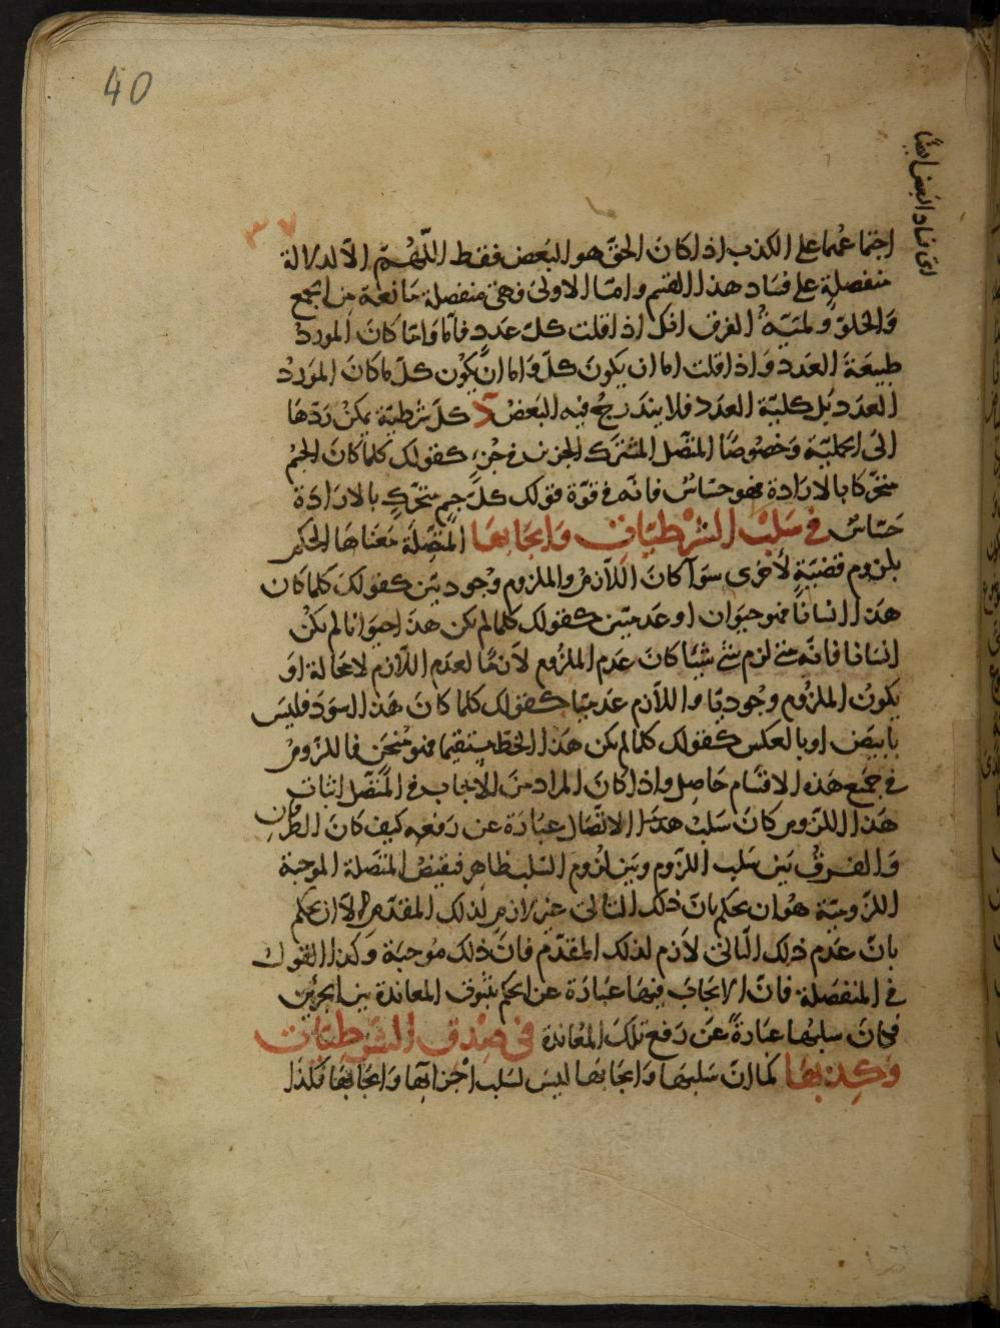 40
٣٧
اى فساد البعض ايضا
اجتماعهما على الكذب اذا كان الحق هو البعض فقط اللهم الا لدلالة
منفصلة على فساد هذا القسم واما الاولى فهى منفصلة مانعة من الجمع
والخلو ولمية الفرق انك اذا قلت كل عدد فاما واما كان المورد
طبيعة العدد واذا قلت اما ان يكون كل واما ان يكون كل ما كان المورد
العدد بل كلية العدد فلا يندرج فيه البعض كل شرطية يمكن ردها
الى الحملية وخصوصا المتصل المشترك الجزئين فى جزء كقولك كلما كان الجسم
متحركا بالارادة فهو حساس فانه فى قوة قولك كل جسم متحرك بالارادة
حساس فى سلب الشرطيات وايجابها المتصلة معناها الحكم
بلزوم قضية لأخرى سوآ كان اللازم والملزوم وجوديين كقولك كلما كان
هذا انسانا فهو حيوان او عدميين كقولك كلما لم يكن هذا حيوانا لم يكن
انسانا فانه متى لزم شئ شيئا كان عدم الملزوم لازما لعدم اللازم لا محالة او
يكون الملزوم وجوديا واللازم عدميا كقولك كلما كان هذا اسود فليس
بابيض او بالعكس كقولك كلما لم يكن هذا الخط مستقيما فهو منحن فاللزوم
فى جميع هذه الاقسام حاصل واذا كان المراد من الايجاب فى المتصل اثبات
هذا اللزوم كان سلب هذا الاتصال عبارة عن رفعه كيف كان الطرفان
والفرق بين سلب اللزوم وبين لزوم السلب ظاهر فنقيض المتصلة الموجبة
اللزومية هو ان يحكم بان ذلك التالى غير لازم لذلك المقدم لا ان يحكم
بان عدم ذلك التالى لازم لذلك المقدم فان ذلك موجبة وكذا القول
فى المنفصلة فان الايجاب فيها عبارة عن الحكم بثبوت المعاندة بين الجزئين
فكان سلبها عبارة عن رفع تلك المعاندة فى صدق الشرطيات
وكذبها كما ان سلبها وايجابها ليس لسلب اجزائها وايجابها فكذا